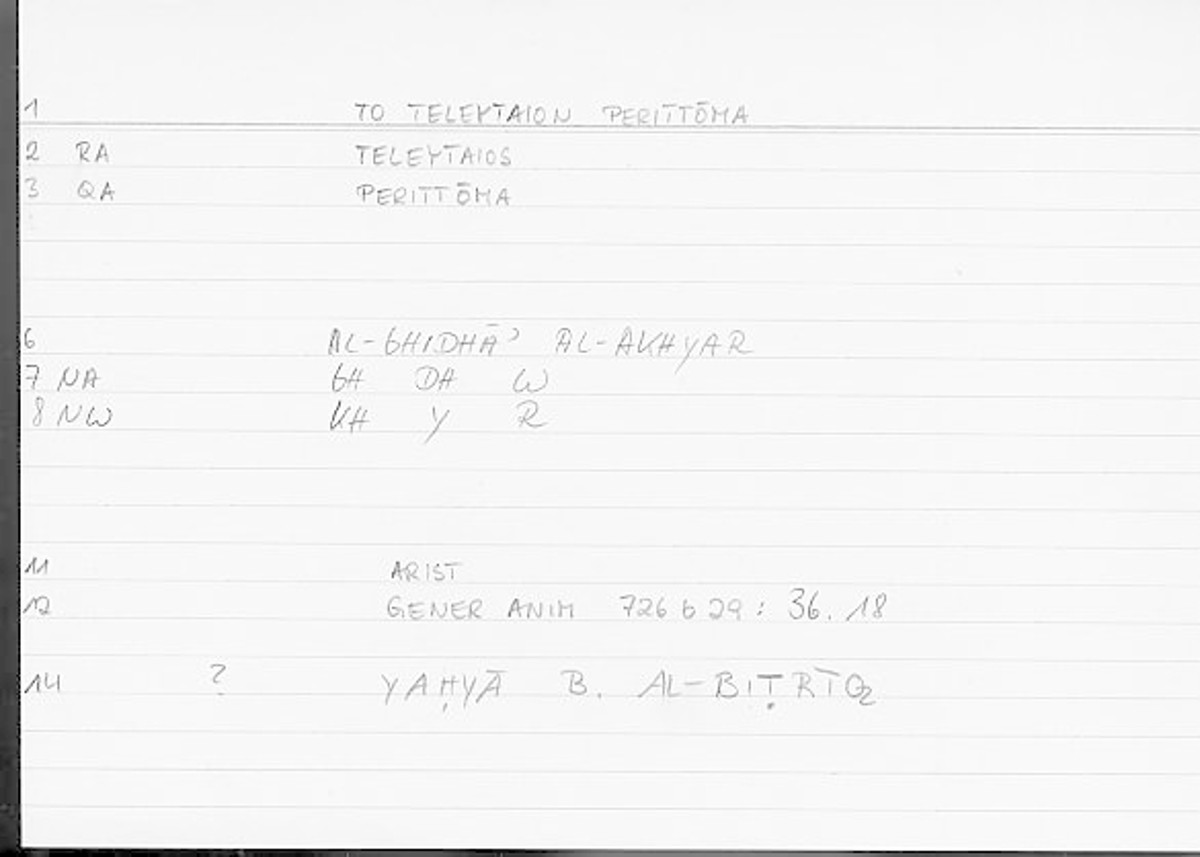 1 TO TELEYTAION PERITTŌMA
2 RA TELEYTAIOS
3 QA PERITTŌMA
6 AL-GHIDHĀʾ AL-AKHYAR
7 NA GH DH W
8 NW KH Y R
11 ARIST
12 GENER ANIM 726 b 29 : 36. 18
14 ? YAḤYĀ B. AL-BIṬRĪQ